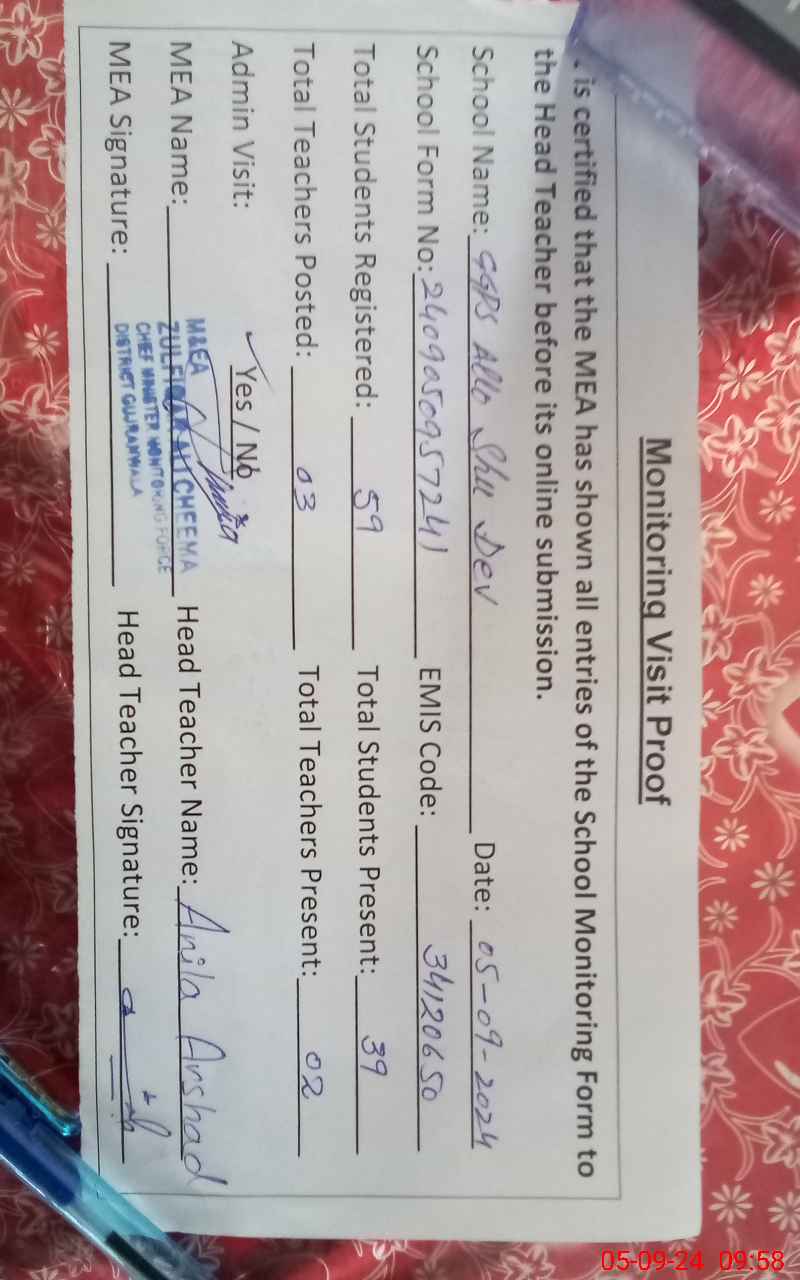 Monitoring Visit Proof
is certified that the MEA has shown all entries of the School Monitoring Form to
the Head Teacher before its online submission.
School Name: GGPS Allo Shu Dev Date: 05-09-2024
School Form No: 2409050957241 EMIS Code: 34120650
Total Students Registered: 59 Total Students Present: 39
Total Teachers Posted: 03 Total Teachers Present: 02
Admin Visit: Yes / No
M&EA
MEA Name: ZULFIQAR ALI CHEEMA Head Teacher Name: Anila Arshad
CHIEF MINISTER MONITORING FORCE
MEA Signature: Head Teacher Signature:
DISTRICT GUJRANWALA
05-09-24 09:58